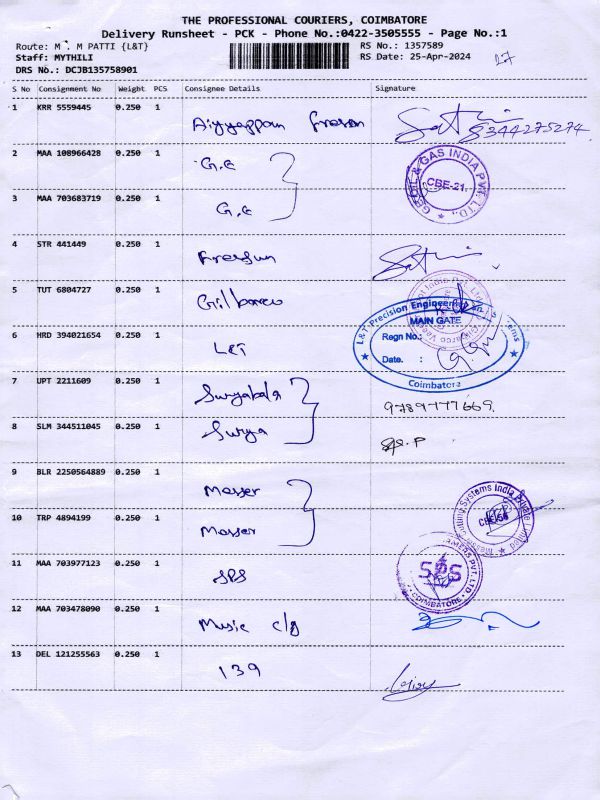 THE PROFESSIONAL COURIERS, COIMBATORE
Delivery Runsheet - PCK - Phone No.:0422-3505555 - Page No.:1
Route: M . M PATTI {L&T}
RS No.: 1357589
Staff: MYTHILI
RS Date: 25-Apr-2024
27
DRS No.: DCJB135758901
S No Consignment No Weight PCS Consignee Details Signature
1 KRR 5559445 0.250 1 Aiyyappan
8344275274
2 MAA 108966428 0.250 1 G.E
GE OIL & GAS INDIA PVT. LTD.,
CBE-21.
3 MAA 703683719 0.250 1 G.E
4 STR 441449 0.250 1
5 TUT 6804727 0.250 1 Gilbarco
6 HRD 394021654 0.250 1 L&T
L&T Precision Engineering
MAIN GATE
Regn No.:
Date. :
Coimbatore
7 UPT 2211609 0.250 1 Suryabala
9789777669.
8 SLM 344511045 0.250 1 Surya
9 BLR 2250564889 0.250 1 Messer
Messer Cutting Systems India Private Limited
10 TRP 4894199 0.250 1 Messer
11 MAA 703977123 0.250 1 SPS
SPS
COIMBATORE
12 MAA 703478090 0.250 1 Music clg
13 DEL 121255563 0.250 1 139